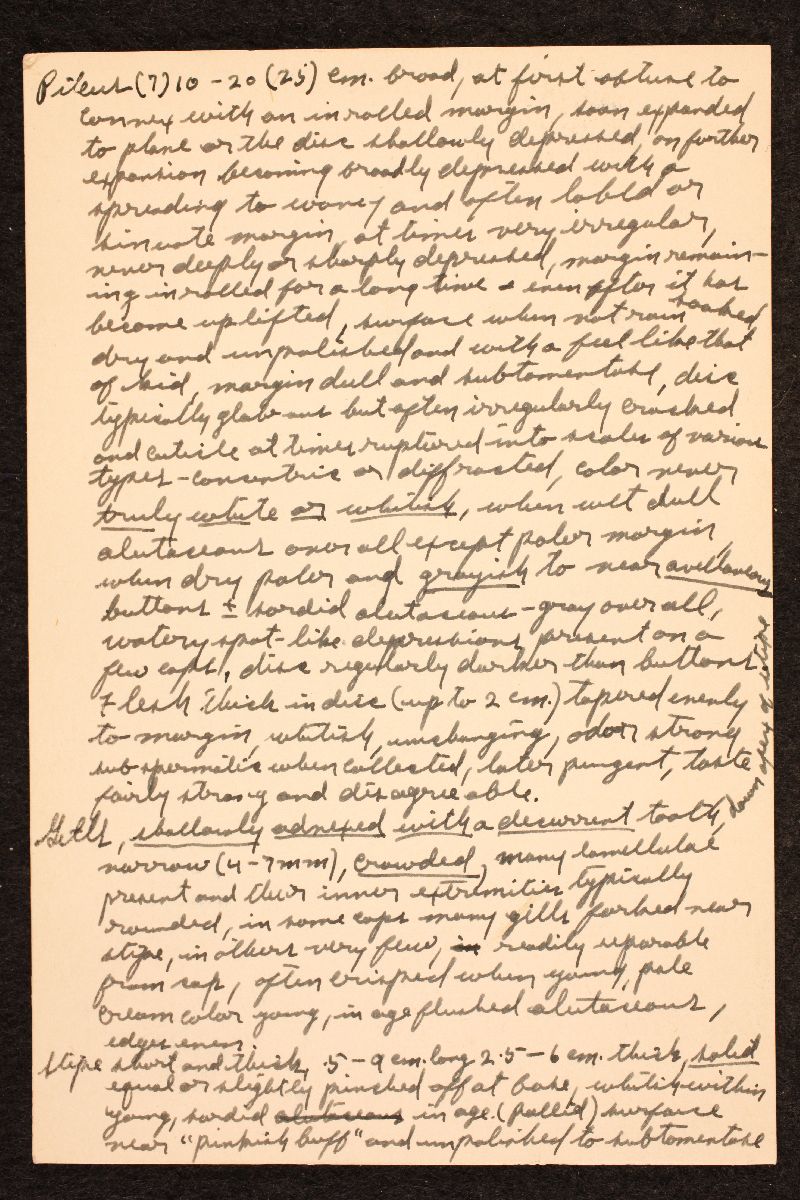 Pileus (7) 10 - 20 (25) cm. broad, at first obtuse to
convex with an inrolled margin, soon expanded
to plane or the disc shallowly depressed, on further
expansion becoming broadly depressed with a
spreading to wavy and often lobed or
sinuate margin, at times very irregular,
never deeply or sharply depressed, margin remain-
ing inrolled for a long time - even after it has
become uplifted, surface when not rain soaked
dry and unpolished and with a feel like that
of kid, margin dull and subtomentose, disc
typically glabrous but often irregularly cracked
and cuticle at times ruptured into scales of various
types - concentric or diffracted, color never
truly white or whitish, when wet dull
alutaceous over all except paler margin,
when dry paler and grayish to near avellaneous
buttons ± sordid alutaceous - gray over all,
watery spot-like depressions present on a
few caps, disc regularly darker than buttons.
Flesh thick in disc (up to 2 cm.) tapered evenly
to margin, whitish, unchanging, odor strong
subspermatic when collected, later pungent, taste
fairly strong and disagreeable.
Gills, shallowly adnexed with a decurrent tooth, down apex of stipe
narrow (4-7 mm), crowded, many lamellulae
present and their inner extremities typically
rounded, in some caps many gills forked near
stipe, in others very few, in readily separable
from cap, often crisped when young, pale
cream color young, in age flushed alutaceous,
edges even.
Stipe short and thick, .5 - 9 cm. long 2.5 - 6 cm. thick, solid
equal or slightly pinched off at base, whitish within
young, sordid alutaceous in age. (pallid) surface
near "pinkish buff" and unpolished to subtomentose